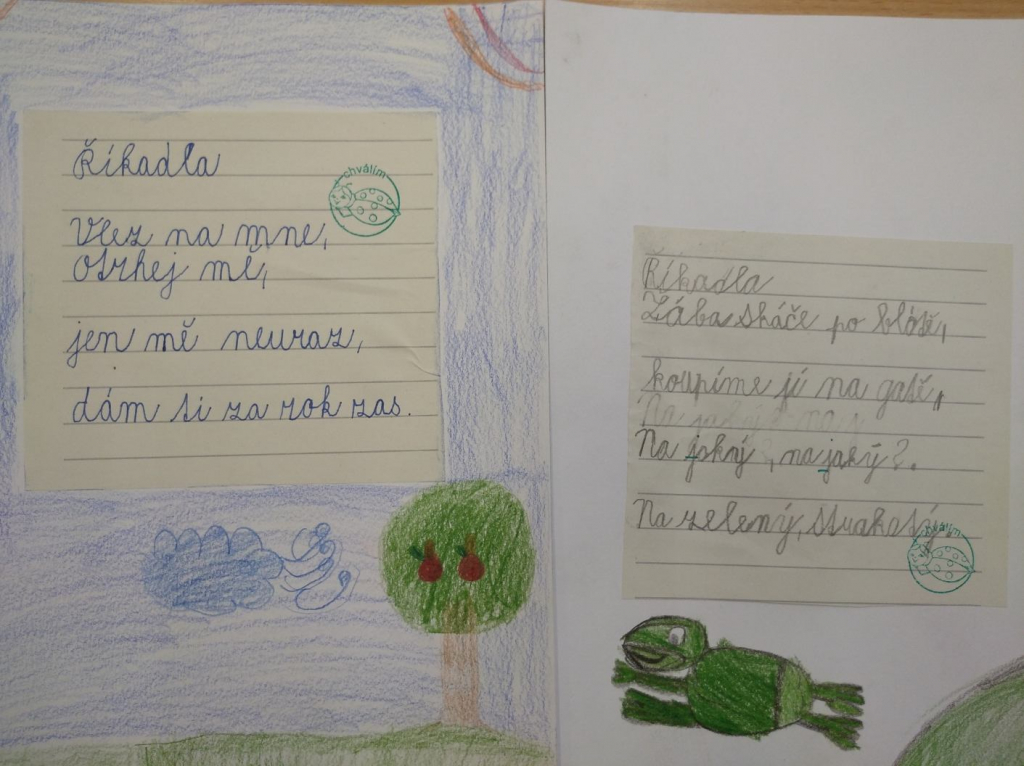 Říkadla
chválím
Vlez na mne,
Otrhej mě,
jen mě neuraz,
dám ti za rok zas.
Říkadla
Žába skáče po blátě,
koupíme jí na gatě,
Na jaký, na jaký?.
Na zelený, strakatý.
chválím